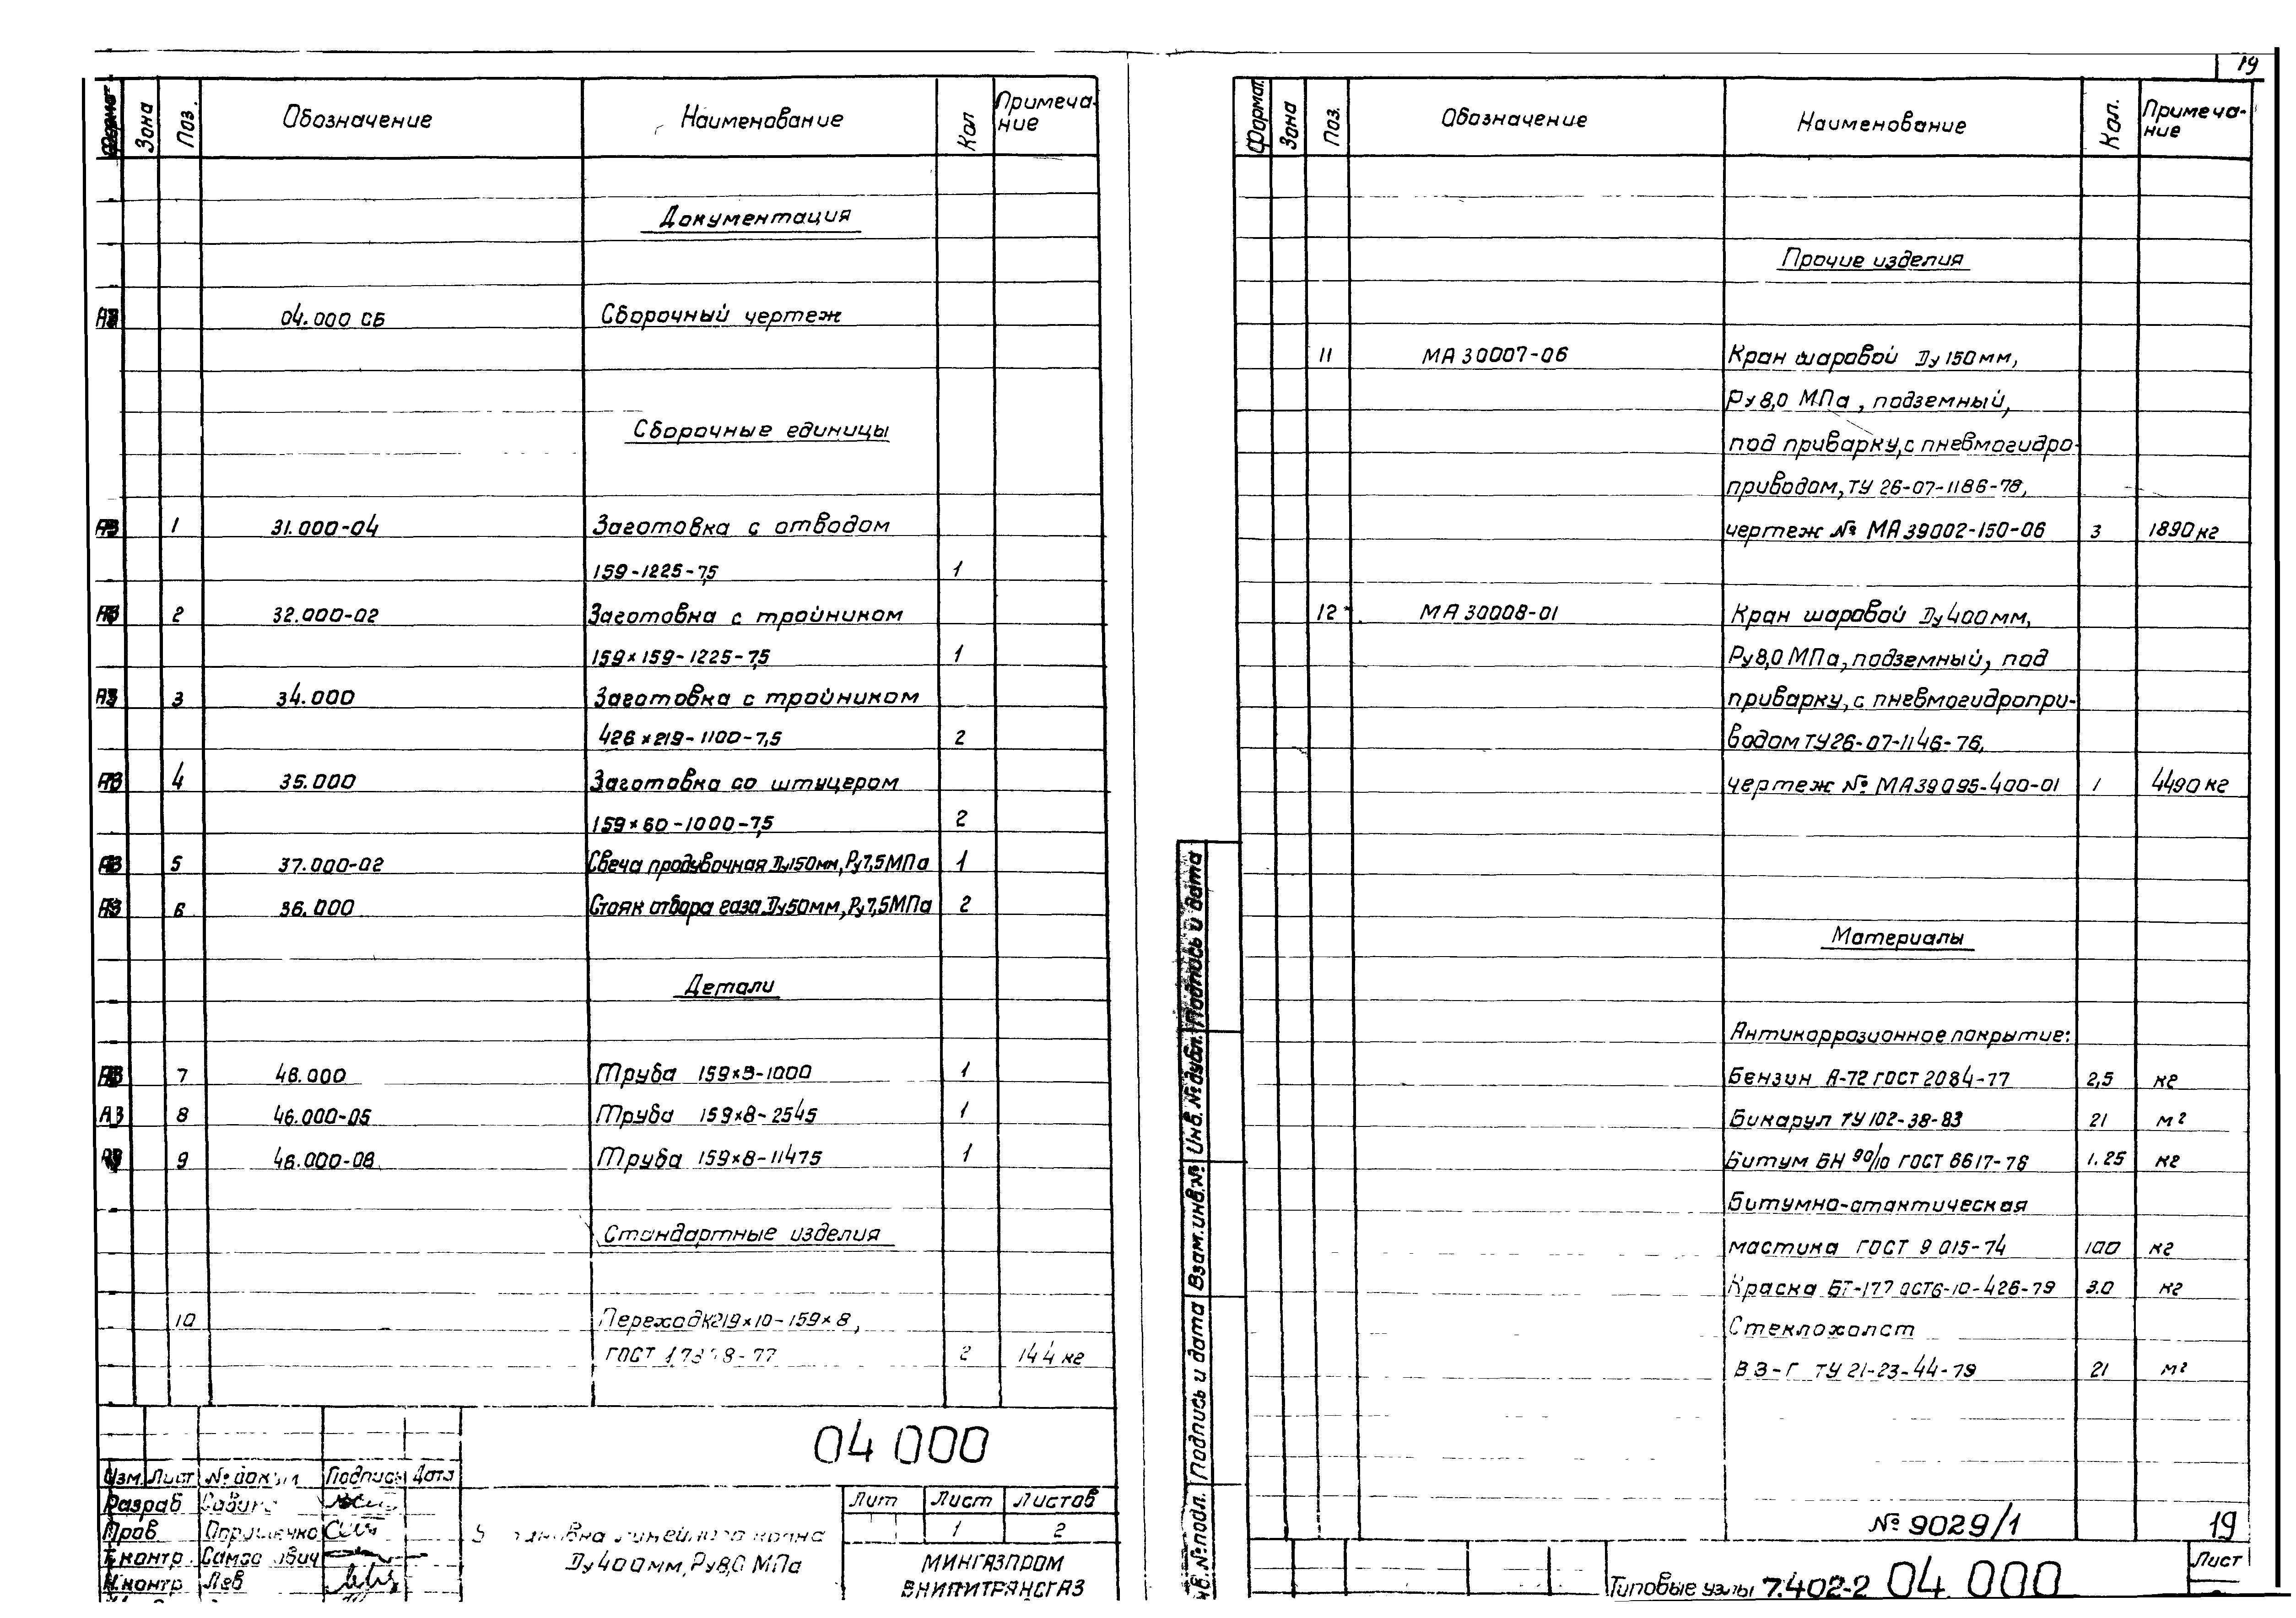 19
Формат Зона Поз. Обозначение Наименование Кол Примеча-
ние
Документация
04.000 СБ Сборочный чертеж
Сборочные единицы
А3 1 31.000-04 Заготовка с отводом
159-1225-7,5 1
А3 2 32.000-02 Заготовка с тройником
159×159-1225-7,5 1
А3 3 34.000 Заготовка с тройником
426×219-1100-7,5 2
А3 4 35.000 Заготовка со штуцером
159×60-1000-7,5 2
А3 5 37.000-02 Свеча продувочная Ду150мм, Ру7,5МПа 1
А3 6 36.000 Стояк отбора газа Ду50мм, Ру7,5МПа 2
Детали
А3 7 46.000 Труба 159×8-1000 1
А3 8 46.000-05 Труба 159×8-2545 1
А3 9 46.000-08 Труба 159×8-11475 1
Стандартные изделия
10 Переход К219×10-159×8,
ГОСТ 2 14,4 кг
04 000
Изм. Лист № докум Подпись Дата
Разраб
Пров
Т.контр
Н.контр Лев
линейного крана
Ду400мм, Ру8,0 МПа
Лит Лист Листов
1 2
МИНГАЗПРОМ
ВНИПИТРАНСГАЗ
Формат Зона Поз. Обозначение Наименование Кол. Примеча-
ние
Прочие изделия
11 МА 30007-06 Кран шаровой Ду 150мм,
Ру8,0 МПа, подземный,
под приварку, с пневмогидро-
приводом, ТУ 26-07-1186-78,
чертеж № МА 39002-150-06 3 1890 кг
12 МА 30008-01 Кран шаровой Ду400мм,
Ру8,0 МПа, подземный, под
приварку, с пневмогидропри-
водом ТУ26-07-1146-76,
чертеж № МА39095-400-01 1 4490 кг
Материалы
Антикоррозионное покрытие:
Бензин А-72 ГОСТ 2084-77 2,5 кг
Бикарул ТУ 102-38-83 21 м²
Битум БН 90/10 ГОСТ 6617-76 1.25 кг
Битумно-атактическая
мастика ГОСТ 9 015-74 100 кг
Краска БТ-177 ОСТ6-10-426-79 3.0 кг
Стеклохолст
ВВ-Г ТУ 21-23-44-79 21 м²
Инв.№подл. Подпись и дата Взам.инв.№ Инв.№дубл. Подпись и дата
№ 9029/1 19
Типовые узлы 7.402-2 04.000 Лист